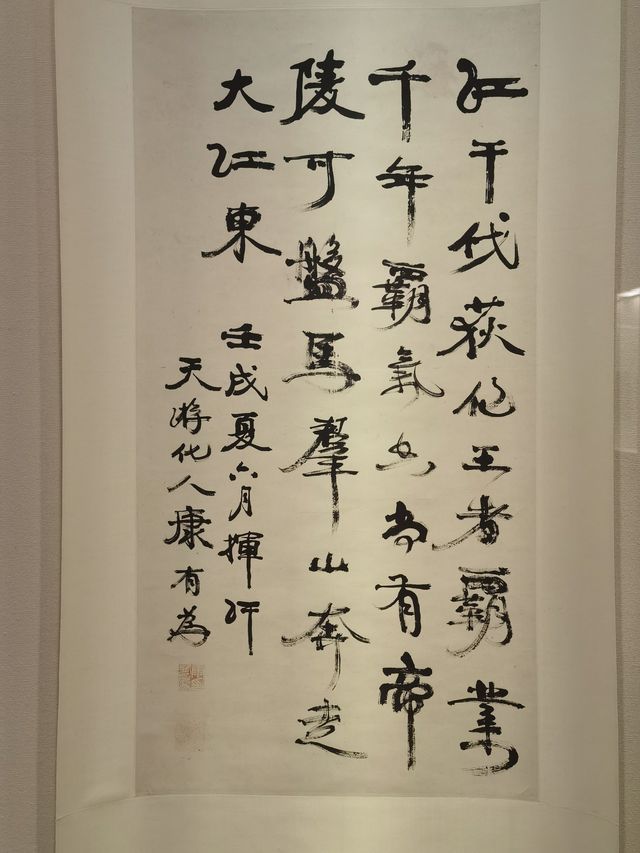 江干伐荻作王者霸業
千年霸氣空尚有帝
陵可盤馬羣山奔走
大江東
壬戌夏六月揮汗
天游化人康有為